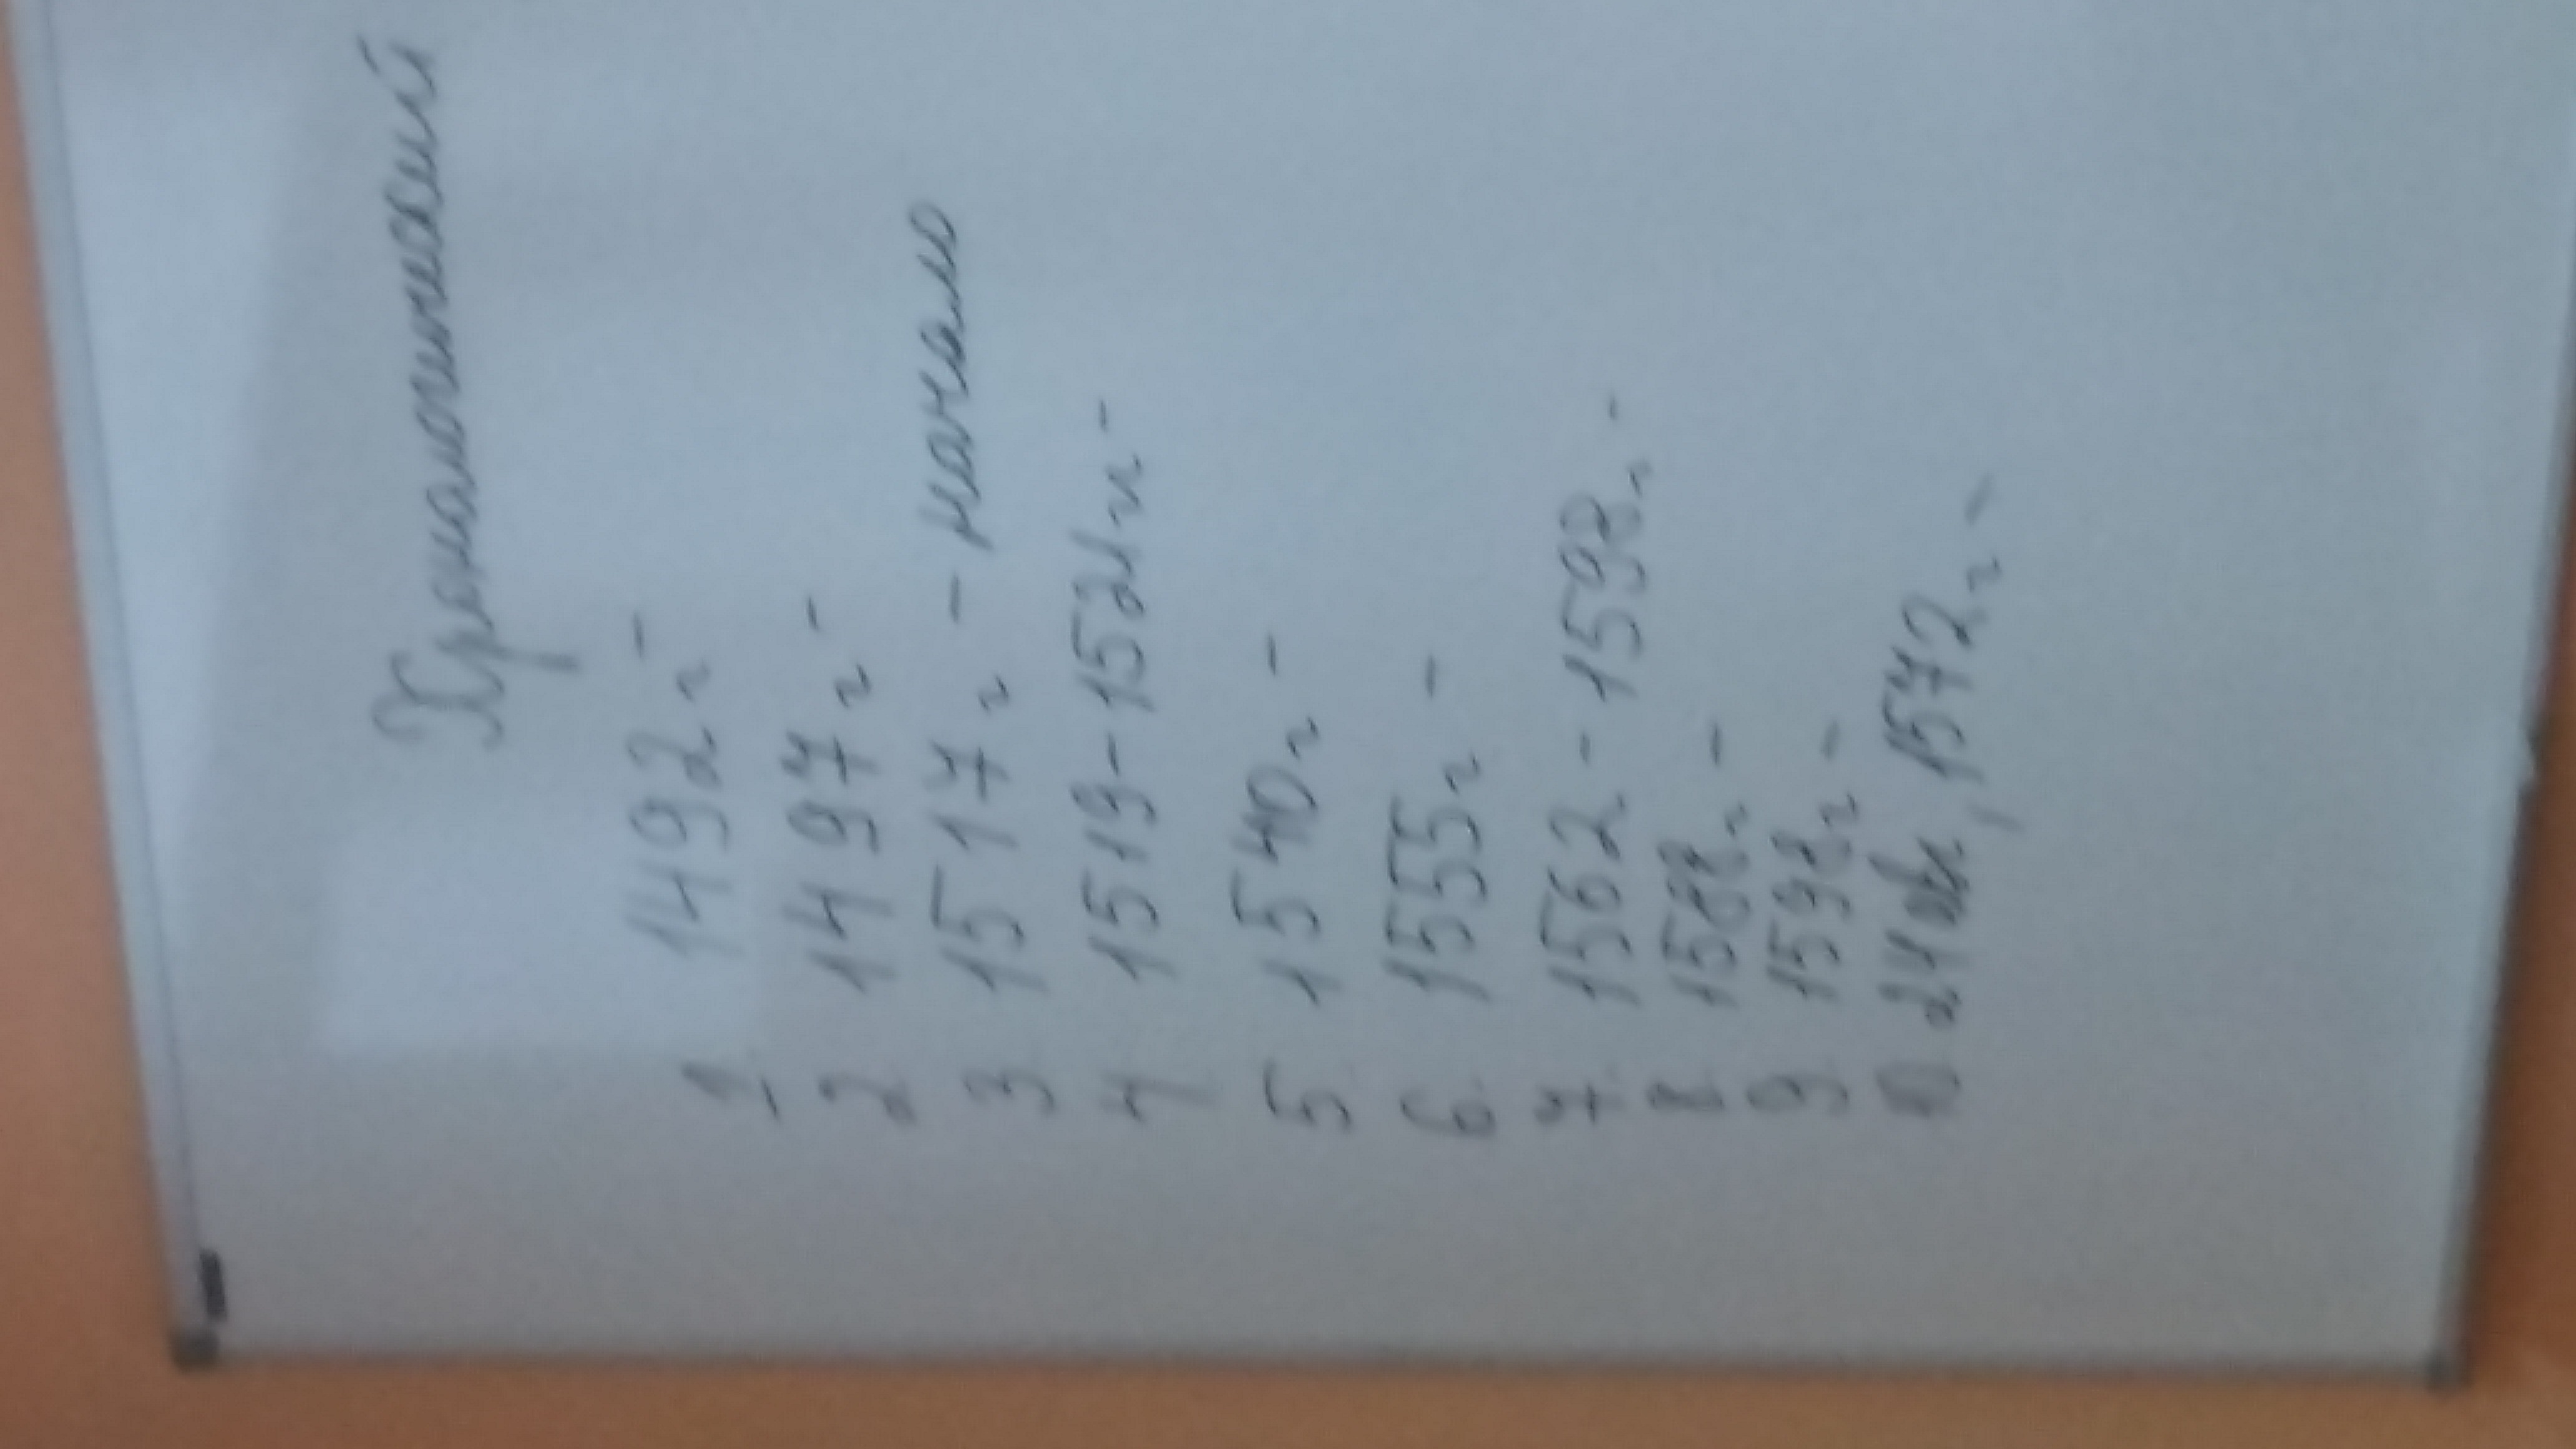 Хронологический
1. 1492г -
2. 1497г -
3. 1517г - начало
4. 1519-1521гг -
5. 1540г -
6. 1555г -
7. 1562 - 1598г -
8. 1588г -
9. 1598г -
10. 24 авг, 1572г -